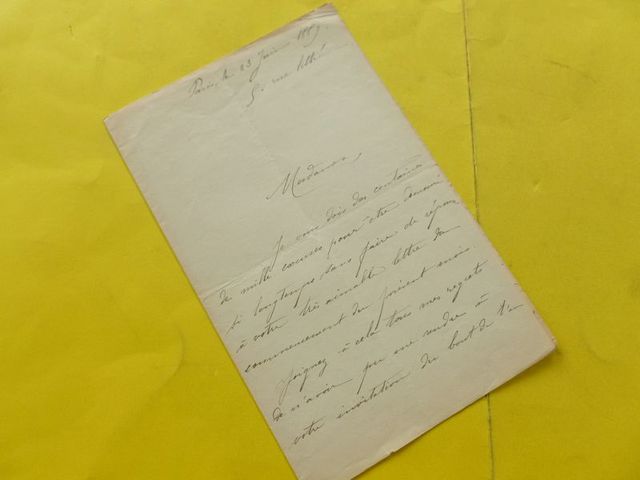 Paris, le 23 Juin 1889
5. rue Littré
Madame,
Je vous dois des centaines
de mille excuses pour être demeuré
si longtemps sans faire de réponse
à votre très aimable lettre du
commencement du présent mois.
Joignez à cela tous mes regrets
de n'avoir pu me rendre à
votre invitation du bout de l'a